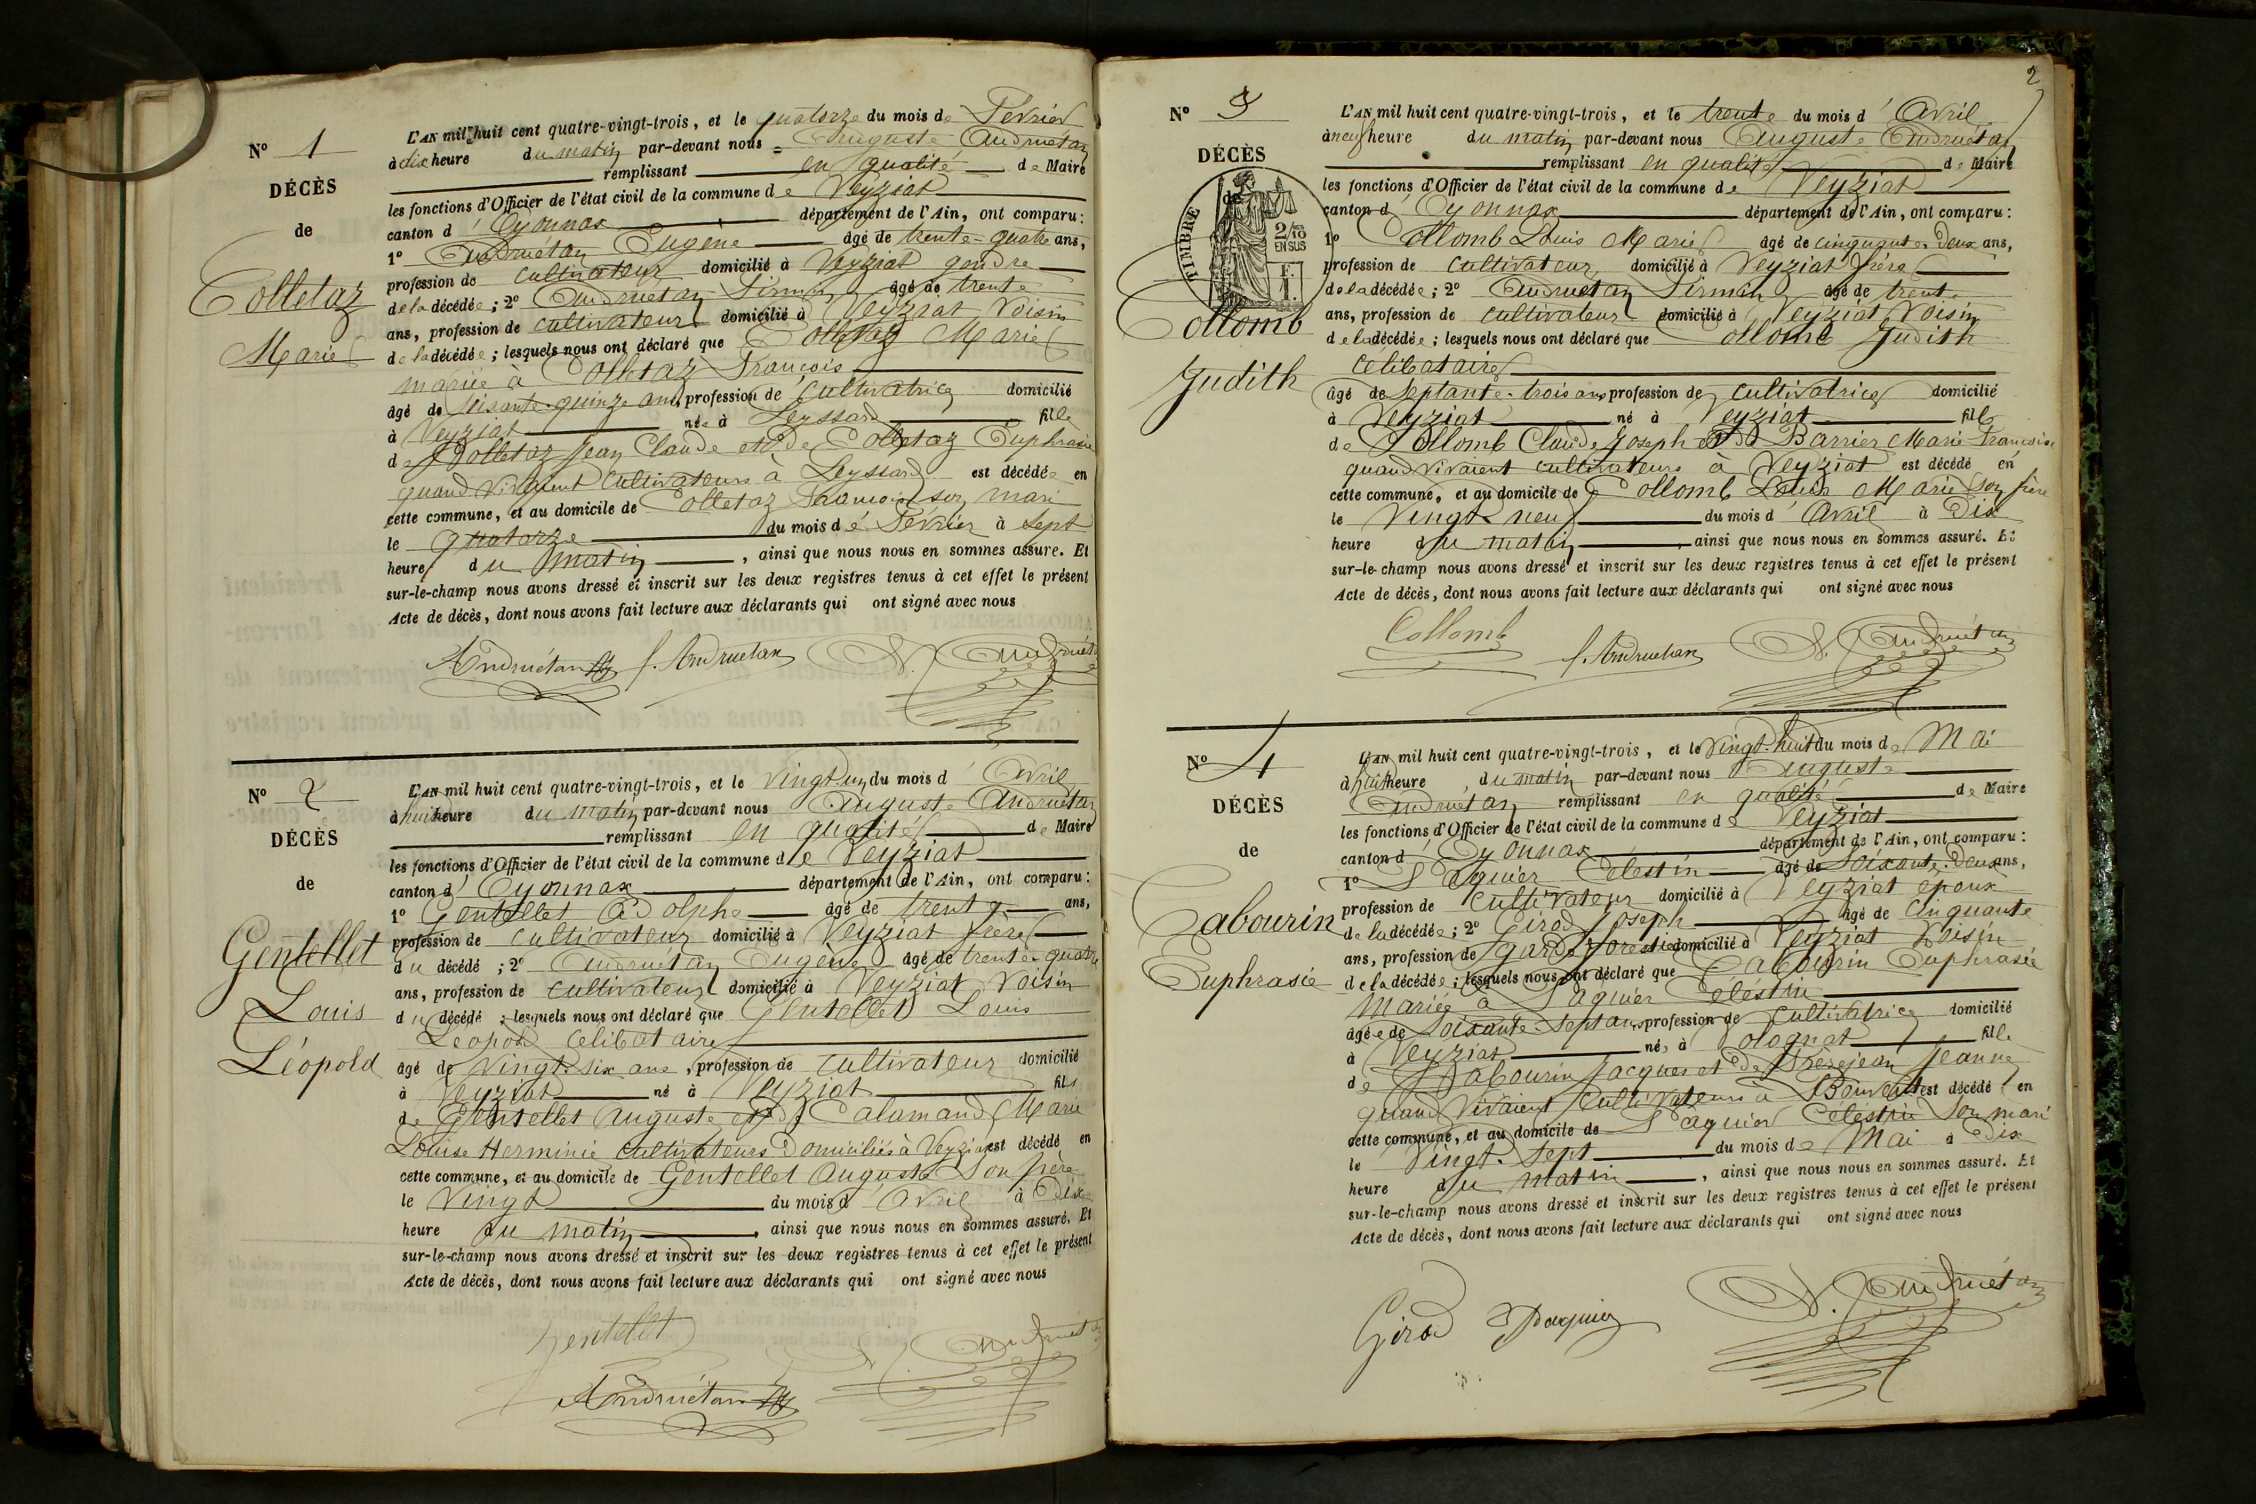 N° 1
DÉCÈS
de
Colletaz
Marie
L'AN mil huit cent quatre-vingt-trois, et le quatorze du mois de Février
à dix heure du matin par-devant nous Auguste Andruétan
remplissant en qualité de Maire
les fonctions d'Officier de l'état civil de la commune de Veyziat
canton d'Oyonnax département de l'Ain, ont comparu :
1° Andruétan Eugène âgé de trente-quatre ans,
profession de cultivateur domicilié à Veyziat gendre
de la décédée ; 2° Andruétan Firmin âgé de trente
ans, profession de cultivateur domicilié à Veyziat Voisin
de la décédée ; lesquels nous ont déclaré que Colletaz Marie
mariée à Colletaz François
âgé de soisante-quinze ans, profession de cultivatrice domicilié
à Veyziat née à Leyssard fille
de Colletaz Jean Claude et de Colletaz Euphrasie
quand vivaient cultivateurs à Leyssard est décédée en
cette commune, et au domicile de Colletaz François son mari
le quatorze du mois de Février à sept
heure du matin, ainsi que nous nous en sommes assuré. Et
sur-le-champ nous avons dressé et inscrit sur les deux registres tenus à cet effet le présent
Acte de décès, dont nous avons fait lecture aux déclarants qui ont signé avec nous
Andruétan f. Andruetan A. Andruétan
N° 2
DÉCÈS
de
Gentellet
Louis
Léopold
L'AN mil huit cent quatre-vingt-trois, et le vingt-un du mois d'Avril
à huit heure du matin par-devant nous Auguste Andruétan
remplissant en qualité de Maire
les fonctions d'Officier de l'état civil de la commune de Veyziat
canton d'Oyonnax département de l'Ain, ont comparu :
1° Gentellet Adolphe âgé de trente ans,
profession de cultivateur domicilié à Veyziat frère
du décédé ; 2° Andruetan Eugène âgé de trente-quatre
ans, profession de cultivateur domicilié à Veyziat Voisin
du décédé ; lesquels nous ont déclaré que Gentellet Louis
Léopold célibataire
âgé de vingt-six ans, profession de cultivateur domicilié
à Veyziat né à Veyziat fils
de Gentellet Auguste et de Calamand Marie
Louise Herminie cultivateurs domiciliés à Veyziat est décédé en
cette commune, et au domicile de Gentellet Auguste son père
le vingt du mois d'Avril à dix
heure du matin, ainsi que nous nous en sommes assuré. Et
sur-le-champ nous avons dressé et inscrit sur les deux registres tenus à cet effet le présent
Acte de décès, dont nous avons fait lecture aux déclarants qui ont signé avec nous
Gentellet A. Andruétan
Andruétan
2
N° 3
DÉCÈS
de
TIMBRE
2/10
EN SUS
Collomb
Judith
L'AN mil huit cent quatre-vingt-trois, et le trente du mois d'Avril
à neuf heure du matin par-devant nous Auguste Andruétan
remplissant en qualité de Maire
les fonctions d'Officier de l'état civil de la commune de Veyziat
canton d'Oyonnax département de l'Ain, ont comparu :
1° Collomb Louis Marie âgé de cinquante-deux ans,
profession de cultivateur domicilié à Veyziat frère
de la décédée ; 2° Andruetan Firmin âgé de trente
ans, profession de cultivateur domicilié à Veyziat Voisin
de la décédée ; lesquels nous ont déclaré que Collomb Judith
célibataire
âgé de septante-trois ans profession de cultivatrice domicilié
à Veyziat né à Veyziat fille
de Collomb Claude Joseph et de Barrier Marie Françoise
quand vivaient cultivateurs à Veyziat est décédé en
cette commune, et au domicile de Collomb Louis Marie son frère
le Vingt-neuf du mois d'Avril à Dix
heure du matin, ainsi que nous nous en sommes assuré. Et
sur-le-champ nous avons dressé et inscrit sur les deux registres tenus à cet effet le présent
Acte de décès, dont nous avons fait lecture aux déclarants qui ont signé avec nous
Collomb f. Andruetan A. Andruétan
N° 4
DÉCÈS
de
Cabourin
Euphrasie
L'AN mil huit cent quatre-vingt-trois, et le vingt-huit du mois de Mai
à huit heure du matin par-devant nous Auguste
Andruétan remplissant en qualité de Maire
les fonctions d'Officier de l'état civil de la commune de Veyziat
canton d'Oyonnax département de l'Ain, ont comparu :
1° Paquier Célestin âgé de soixante-deux ans,
profession de cultivateur domicilié à Veyziat époux
de la décédée ; 2° Girod Joseph âgé de cinquante
ans, profession de garde forestier domicilié à Veyziat Voisin
de la décédée ; lesquels nous ont déclaré que Cabourin Euphrasie
mariée à Paquier Célestin
âgée de soixante-sept ans profession de cultivatrice domicilié
à Veyziat née à Bolognat fille
de Cabourin Jacques et de Frèrejean Jeanne
quand vivaient cultivateurs à Bouvent est décédé en
cette commune, et au domicile de Paquier Célestin son mari
le vingt-sept du mois de Mai à dix
heure du matin, ainsi que nous nous en sommes assuré. Et
sur-le-champ nous avons dressé et inscrit sur les deux registres tenus à cet effet le présent
Acte de décès, dont nous avons fait lecture aux déclarants qui ont signé avec nous
Girod Paquier A. Andruétan